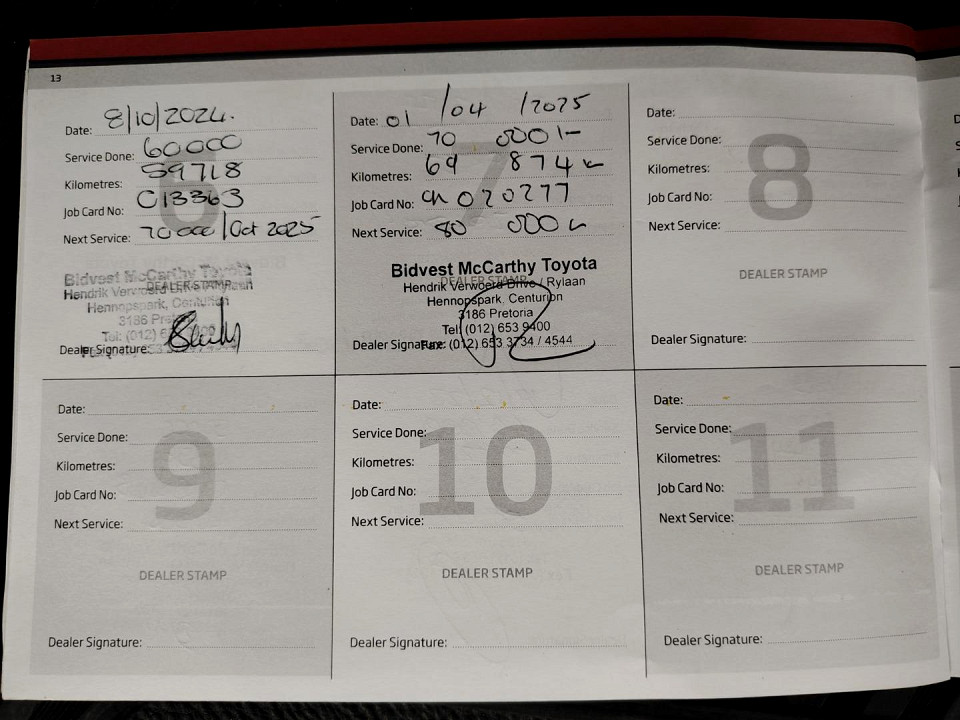 13
Date: 8/10/2024.
Service Done: 60000
Kilometres: 59718
Job Card No: C13363
Next Service: 70 000 / Oct 2025
6
Bidvest McCarthy Toyota
DEALER STAMP
Hendrik Verwoerd
Hennopspark, Centurion
3186 Pretoria
Tel: (012) 6
Dealer Signature:
Date: 01 / 04 / 2025
Service Done: 70 000
Kilometres: 69 874
Job Card No: 020277
Next Service: 80 000
7
Bidvest McCarthy Toyota
DEALER STAMP
Hendrik Verwoerd Drive / Rylaan
Hennopspark, Centurion
3186 Pretoria
Tel: (012) 653 9400
Dealer Signature:
Fax: (012) 653 3734 / 4544
Date:
Service Done:
Kilometres:
Job Card No:
Next Service:
8
DEALER STAMP
Dealer Signature:
Date:
Service Done:
Kilometres:
Job Card No:
Next Service:
9
DEALER STAMP
Dealer Signature:
Date:
Service Done:
Kilometres:
Job Card No:
Next Service:
10
DEALER STAMP
Dealer Signature:
Date:
Service Done:
Kilometres:
Job Card No:
Next Service:
11
DEALER STAMP
Dealer Signature: